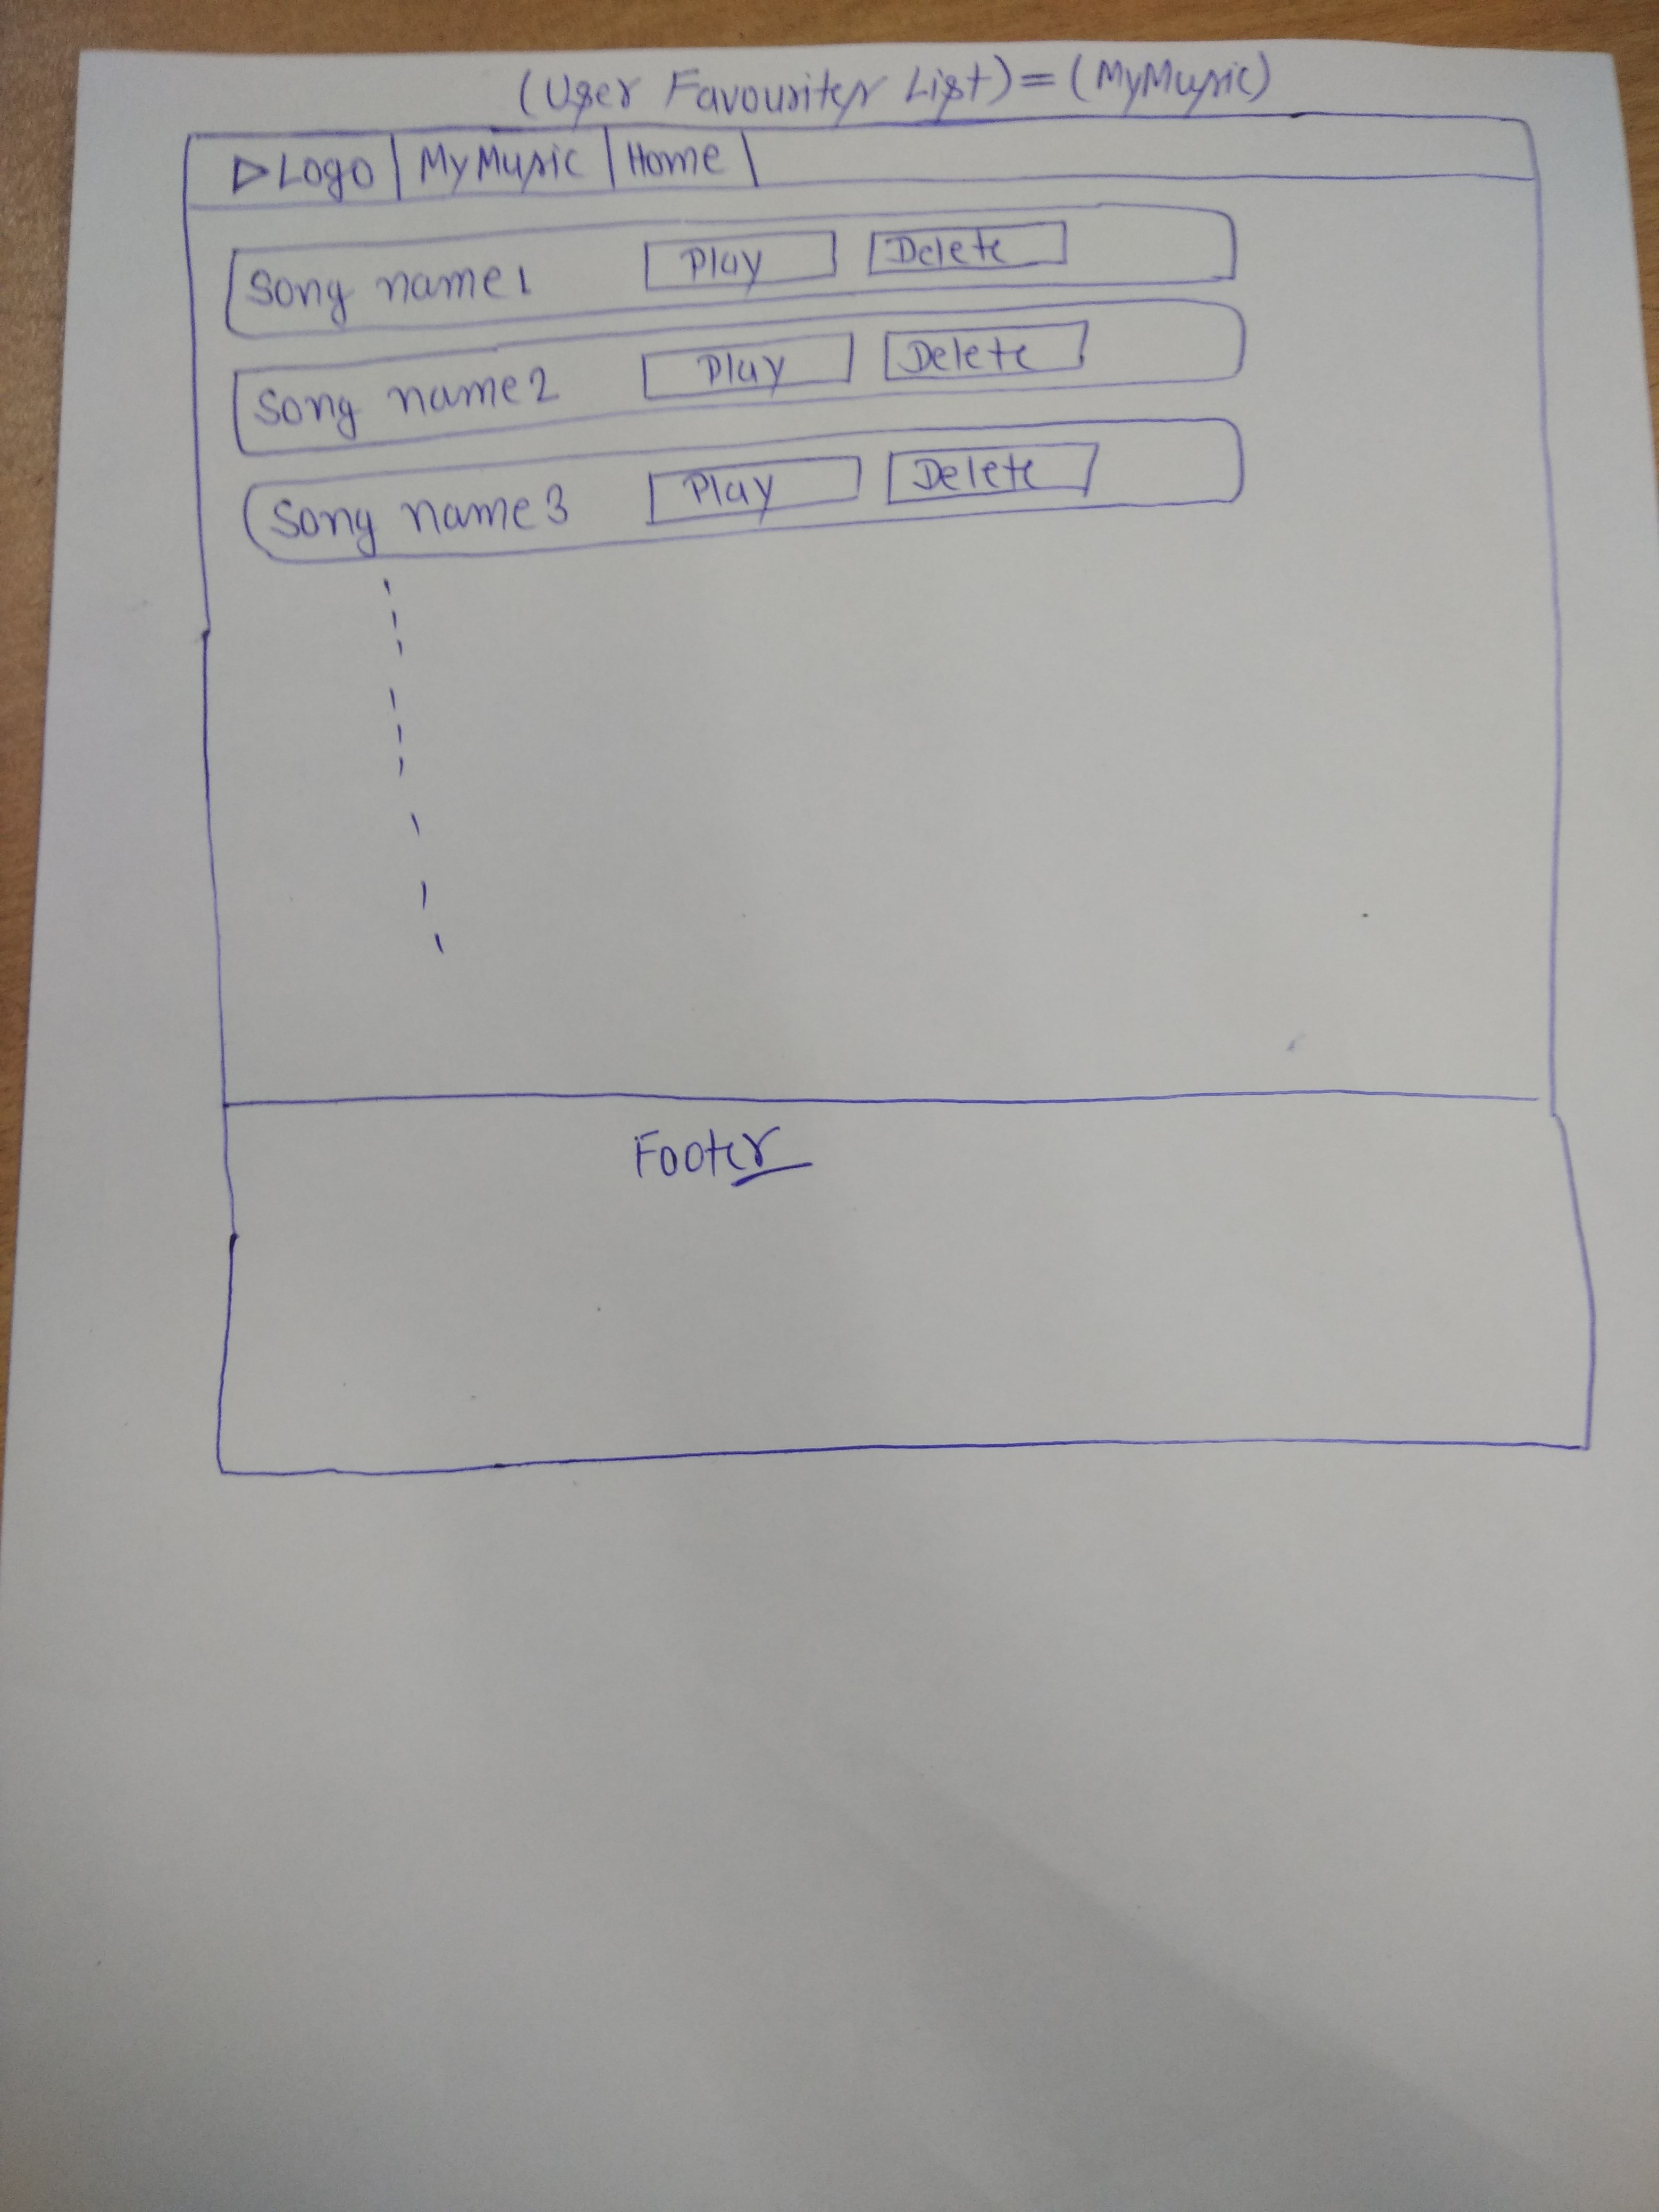 (User Favourites List) = (MyMusic)
Logo MyMusic Home
Song name1 Play Delete
Song name2 Play Delete
Song name3 Play Delete
Footer